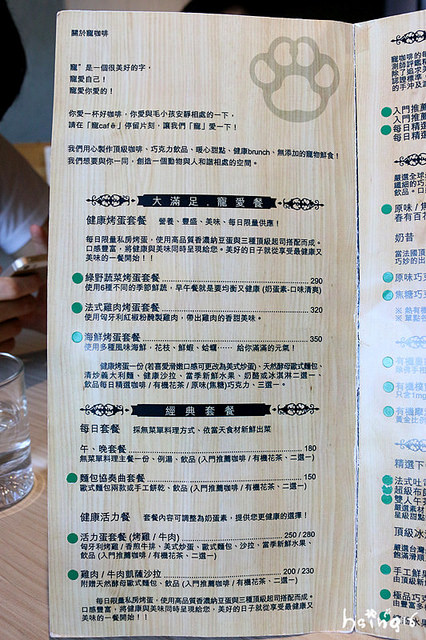 關於寵咖啡
寵"是一個很美好的字,
寵愛自己!
寵愛你愛的!
你愛一杯好咖啡,你愛與毛小孩安靜相處的一下,
請在「寵café」停留片刻,讓我們「寵」愛一下!
我們用心製作頂級咖啡、巧克力飲品、暖心甜點、健康brunch、無添加的寵物鮮食!
我們想要與你一同,創造一個動物與人和諧相處的空間。
大滿足.寵愛餐
健康烤蛋套餐 營養、豐盛、美味、每日限量供應!
每日限量私房烤蛋,使用高品質香濃納豆蛋與三種頂級起司搭配而成。
口感豐富,將健康與美味同時呈現給您。美好的日子就從享受最健康又
美味的一餐開始!!
綠野蔬菜烤蛋套餐 290
使用6種不同的季節鮮蔬,早午餐就是要均衡又健康 (奶蛋素-口味清爽)
法式雞肉烤蛋套餐 320
使用匈牙利紅椒粉醃製雞肉,帶出雞肉的香甜美味。
海鮮烤蛋套餐 350
使用多種風味海鮮,花枝、鮮蝦、蛤蠣…… 給你滿滿的元氣!
健康烤蛋一份 (若喜愛滑嫩口感可更改為美式炒蛋)、天然酵母歐式麵包、
清炒義大利麵、健康沙拉、當季新鮮水果、奶酪或冰淇淋二選一、
飲品每日精選咖啡 / 有機花茶 / 原味(焦糖)巧克力,三選一。
經典套餐
每日套餐 採無菜單料理方式、依當天食材新鮮出菜
午、晚套餐 180
無菜單料理主餐一份、例湯、飲品 (入門推薦咖啡 / 有機花茶、二選一)
麵包協奏曲套餐 150
歐式麵包兩款或手工餅乾、飲品 (入門推薦咖啡 / 有機花茶、二選一)
健康活力餐 套餐內容可調整為奶蛋素,提供您更健康的選擇!
活力蛋套餐 (烤雞 / 牛肉) 250 / 280
匈牙利烤雞 / 香煎牛排、美式炒蛋、歐式麵包、沙拉、當季新鮮水果、
飲品 (入門推薦咖啡 / 有機花茶、二選一)
雞肉 / 牛肉凱薩沙拉 200 / 230
附贈天然酵母歐式麵包、飲品 (入門推薦咖啡 / 有機花茶、二選一)
每日限量私房烤蛋,使用高品質香濃納豆蛋與三種頂級起司搭配而成。
口感豐富,將健康與美味同時呈現給您,美好的日子就從享受最健康又
美味的一餐開始!!
入門推
入門推
每日精選
每日精選
嚴選全球
飲品。口
原味 / 焦
春有百花
奶昔
當法國頂
巧妙的出
原味巧克
焦糖巧克
精選下
法式吐司
超級布
雙人午茶
嚴選素材
頂級冰
嚴選台灣
手工鮮
由頂級新
極品巧